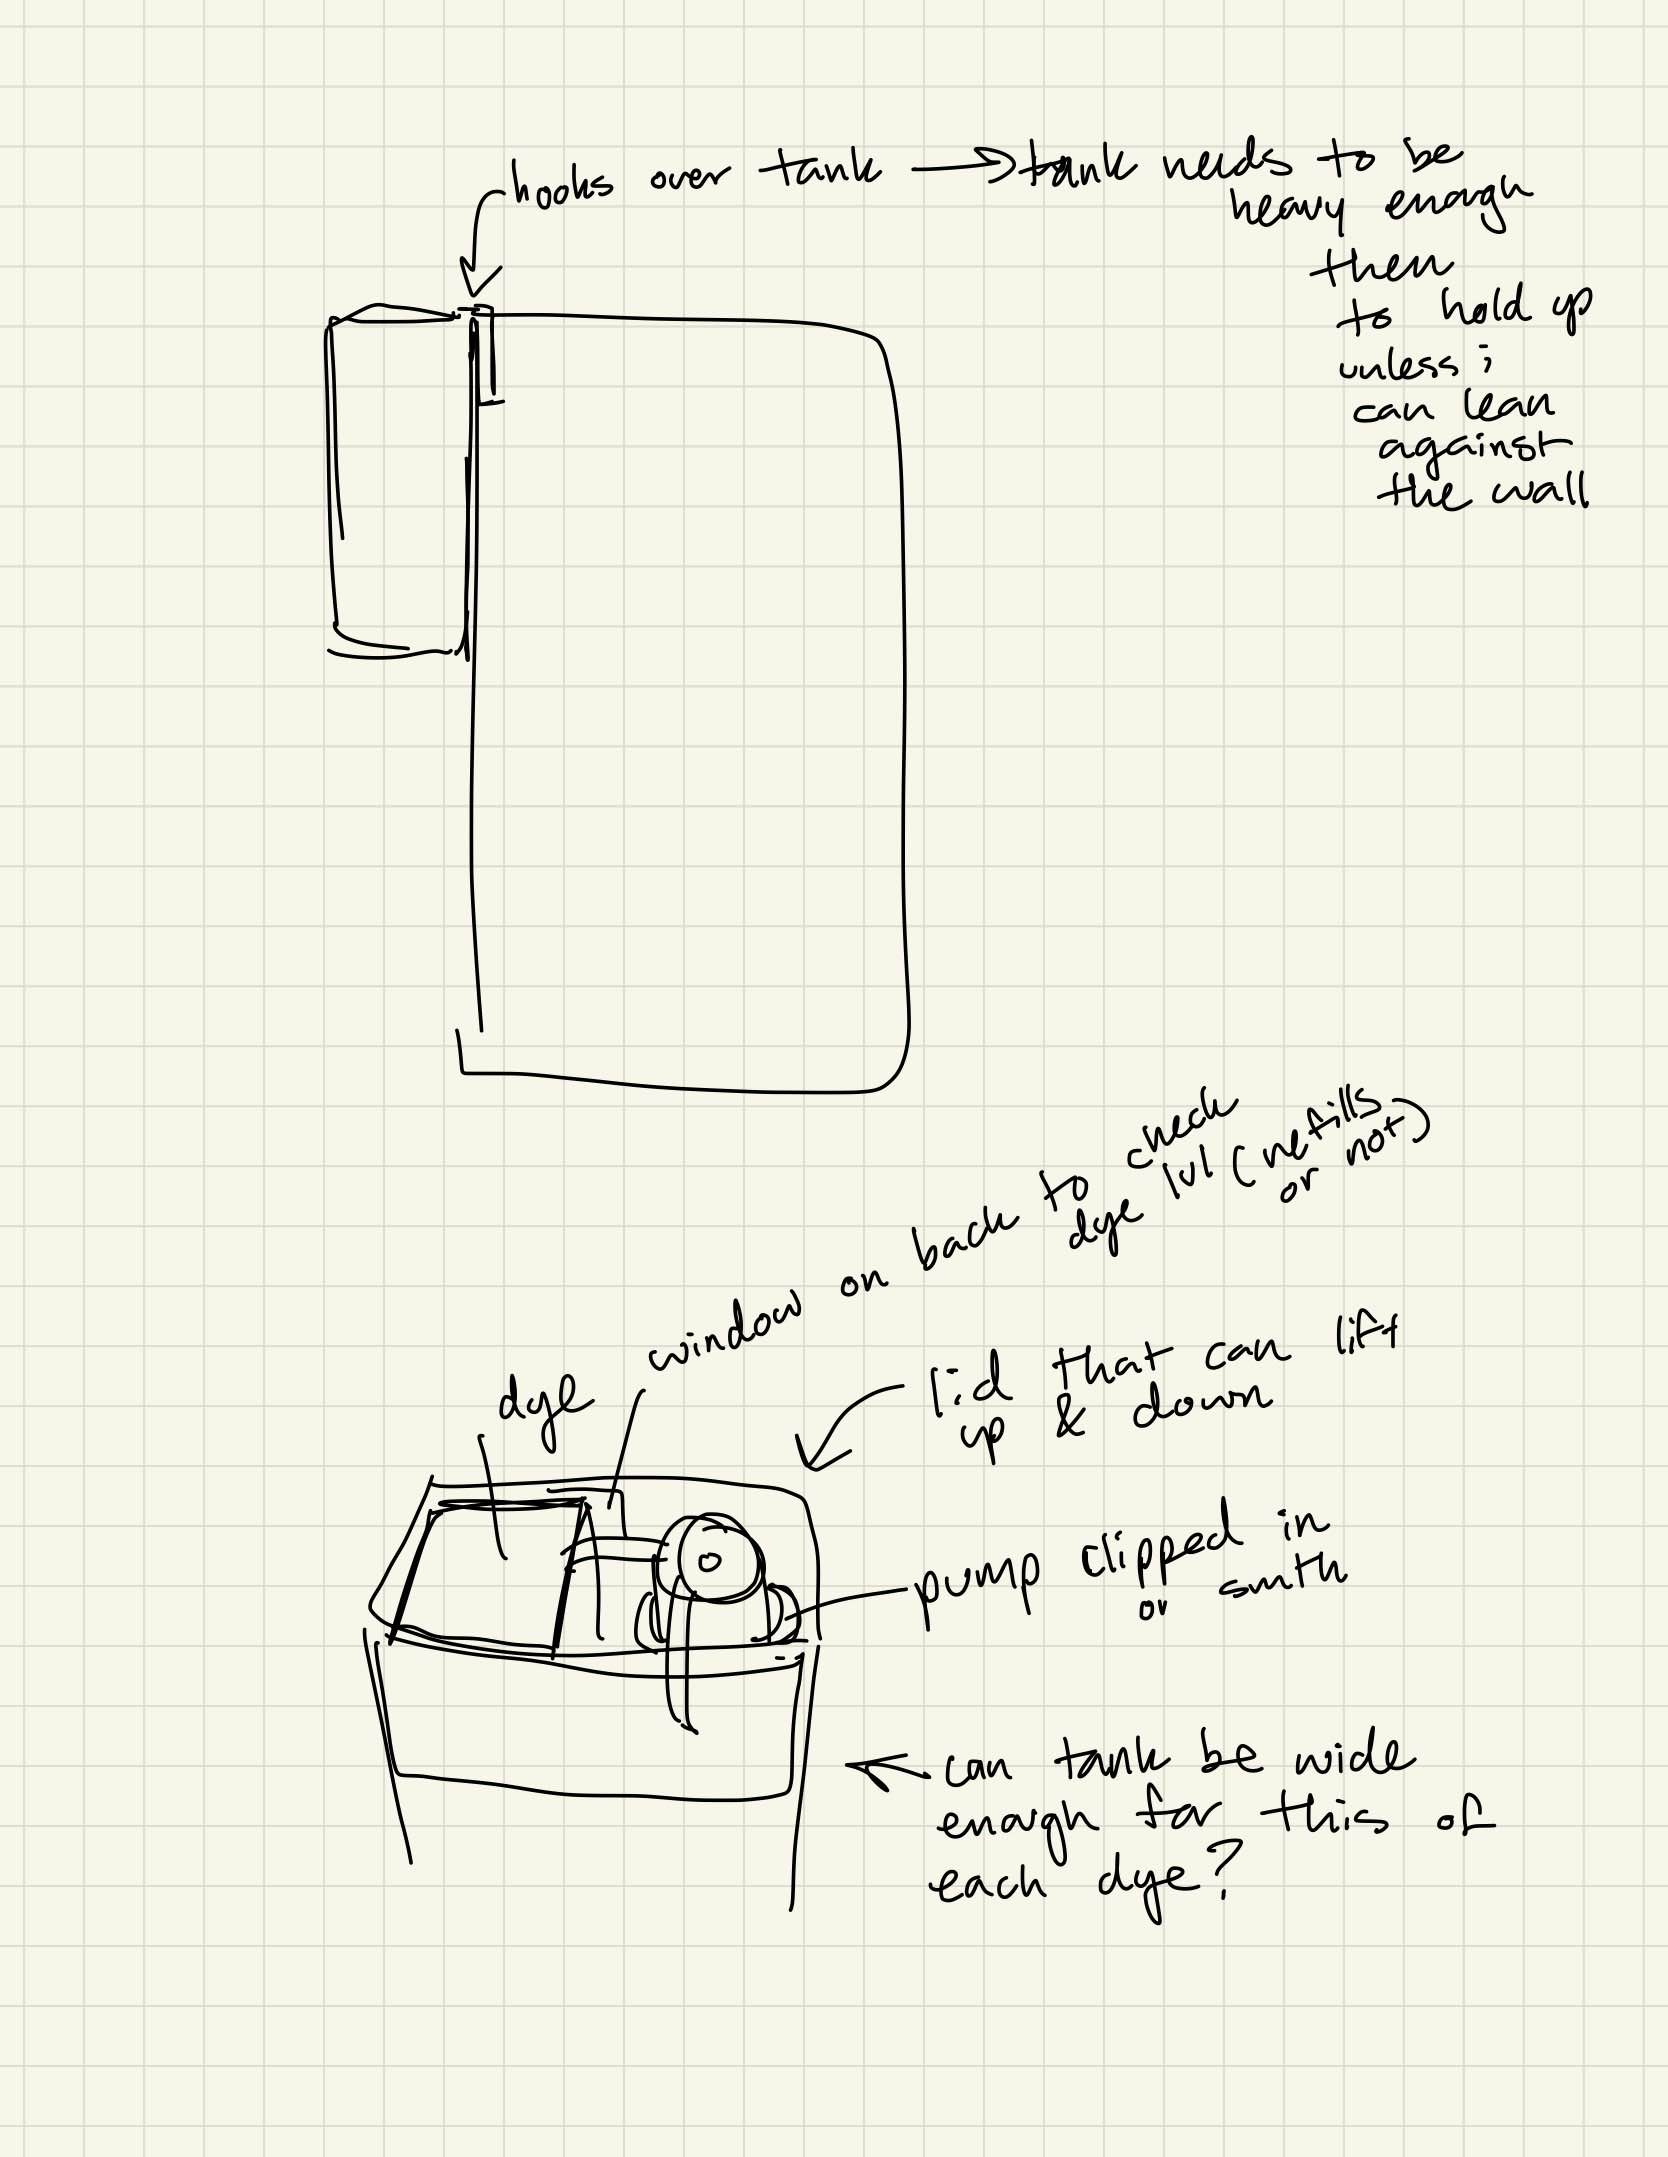 hooks over tank → tank needs to be
heavy enough
then
to hold up
unless ;
can lean
against
the wall
window on back to check
dye lvl (refills
or not)
dye
lid that can lift
up & down
pump clipped in
or smth
can tank be wide
enough for this of
each dye?